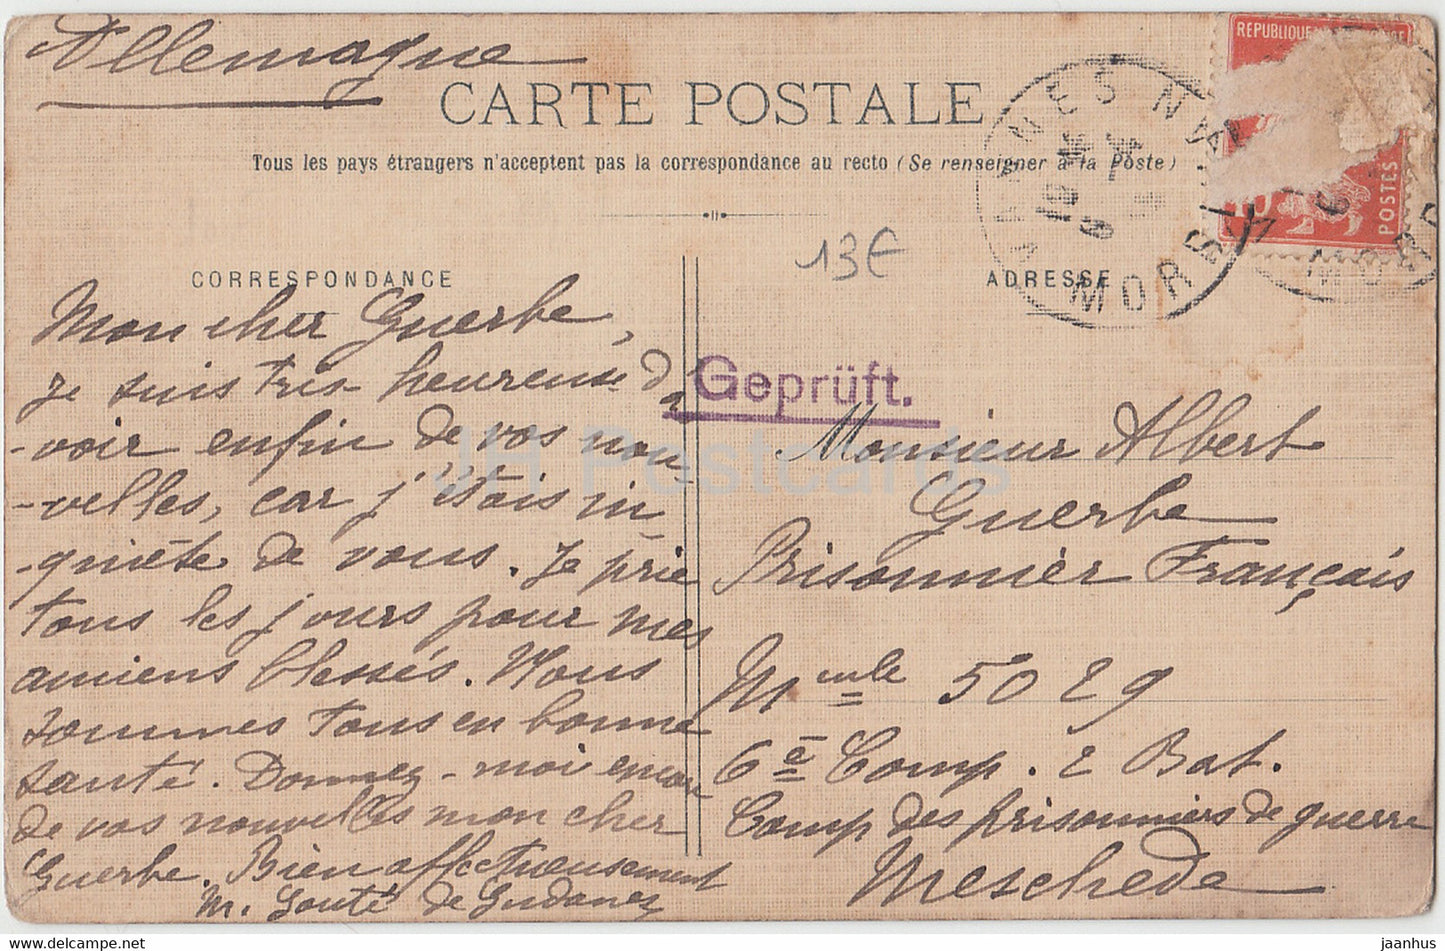 Allemagne
CARTE POSTALE
Tous les pays étrangers n'acceptent pas la correspondance au recto (Se renseigner à la Poste)
RÉPUBLIQUE
POSTES
10
VANNES
MORBIHAN
13€
CORRESPONDANCE
Mon cher Guerbe,
je suis très heureuse d'a
-voir enfin de vos nou
-velles, car j'étais in
-quiète de vous. Je prie
tous les jours pour mes
anciens blessés. Nous
sommes tous en bonne
santé. Donnez-moi encore
de vos nouvelles mon cher
Guerbe. Bien affectueusement
M. de
ADRESSE
Geprüft.
Monsieur Albert
Guerbe
Prisonnier Français
Mcule 5029
6e Comp. 2 Bat.
Camp des prisonniers de guerre
Meschede
JH Postcards
https://www.hippostcard.com